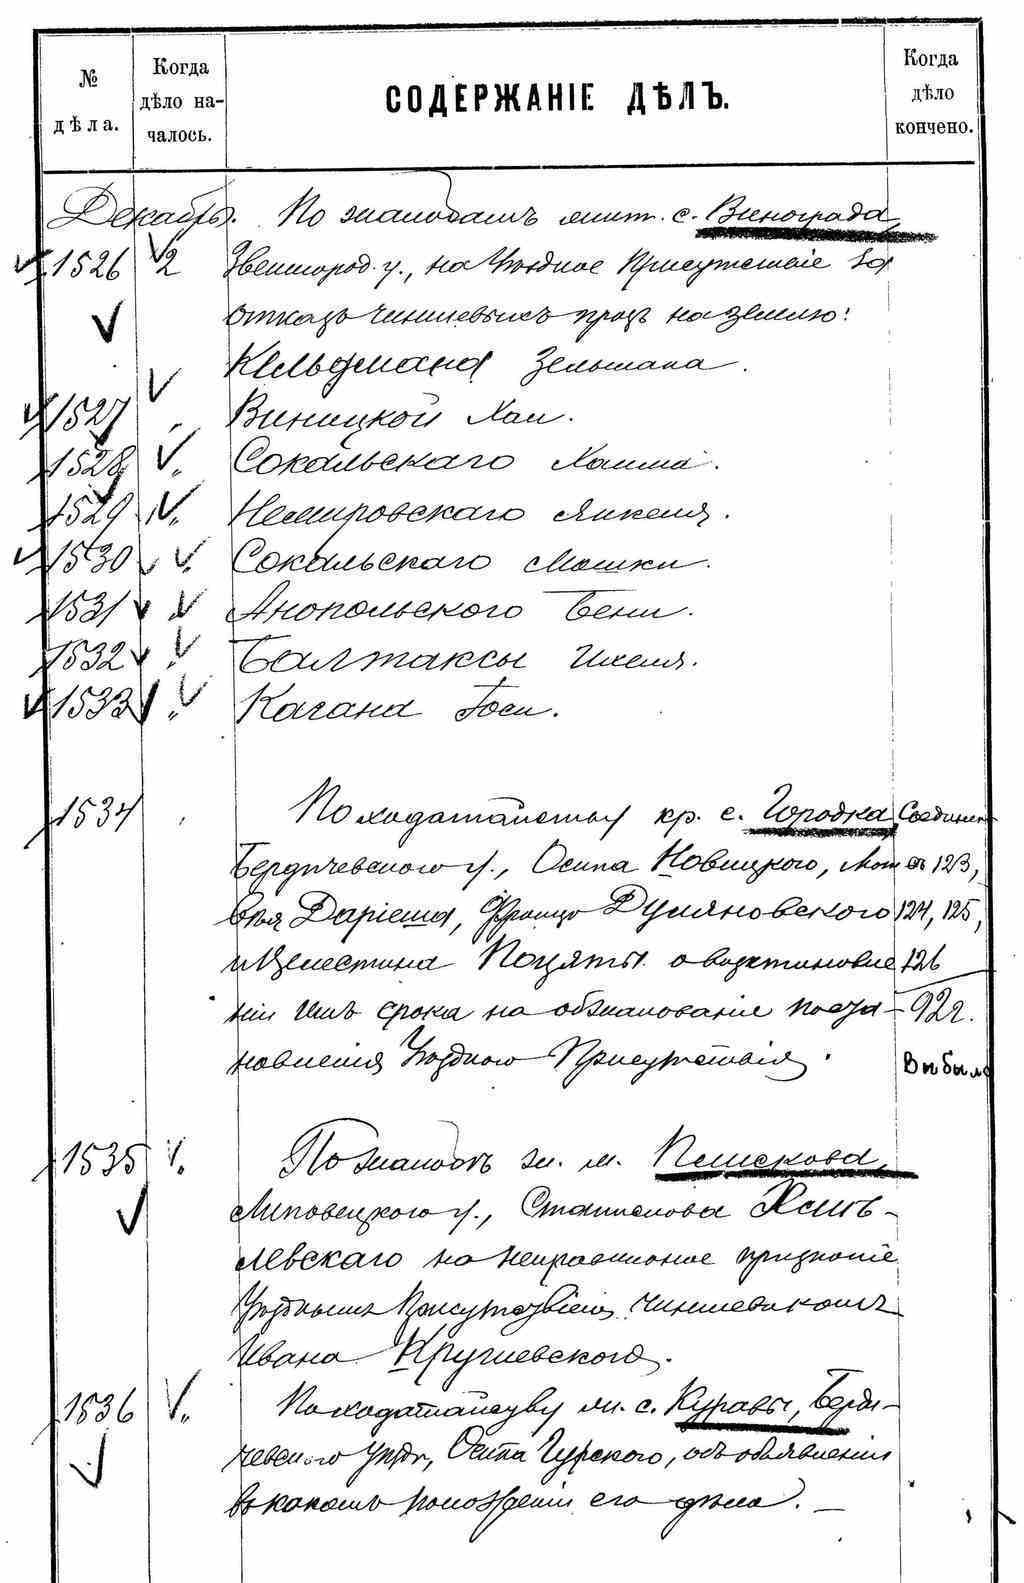 № дѣла.
Когда дѣло началось.
СОДЕРЖАНІЕ ДѢЛЪ.
Когда дѣло кончено.
Декабрь. По жалобамъ жит. с. Винограда,
1526 2 Звенигород. у., на Уѣздное Присутствіе за
отказъ чиншевыхъ правъ на землю:
Кельдмана Зельмана.
1527 „ Виницкой Хаи.
1528 „ Сокальскаго Хаима.
1529 „ Немировскаго Янкеля.
1530 „ Сокальскаго Мошки.
1531 „ Анопольского Бени.
1532 „ Балтаксы Ихеля.
1533 „ Кагана Госи.
1534 „ По ходатайству кр. с. Городка, Соединен
Бердичевского у., Осипа Новицкого, Мат съ 123,
вѣя Даріеша, Франца Дуляновского 124, 125,
и Целестина Поцяты о возстановле 126
ніи имъ срока на обжалованіе поста- 92 г.
новленія Уѣздного Присутствія. Выбыло
1535 „ По жалобѣ ж. м. Пшискова,
Липовецкого у., Станислова Хмѣ-
левскаго на неправильное признаніе
Уѣзднымъ Присутствіемъ чиншевикомъ
Ивана Кругиевского.
1536 „ По ходатайству ж. с. Куравы, Берди-
чевского уѣзд., Осипа Гурского, объ объявленіи
въ какомъ положеніи его дѣло. —